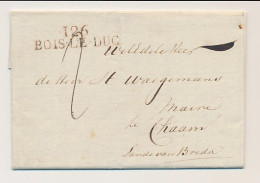 126
BOIS-LE-DUC
Weledele Heer
de Heer A Waegemans
Maire
te Chaam
Lande van Breda